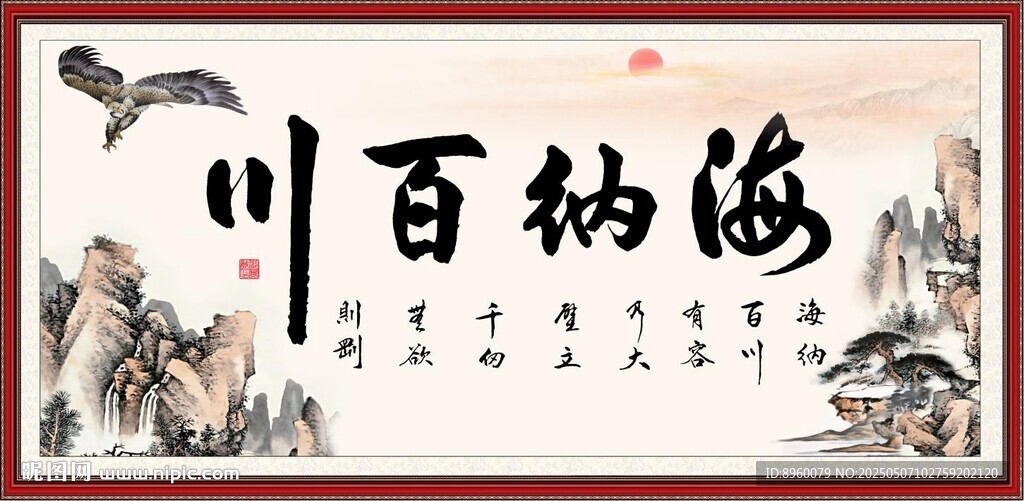 海納百川
海納
百川
有容
乃大
壁立
千仞
無欲
則剛
昵图网 www.nipic.com
ID:8960079 NO:20250507102759202120